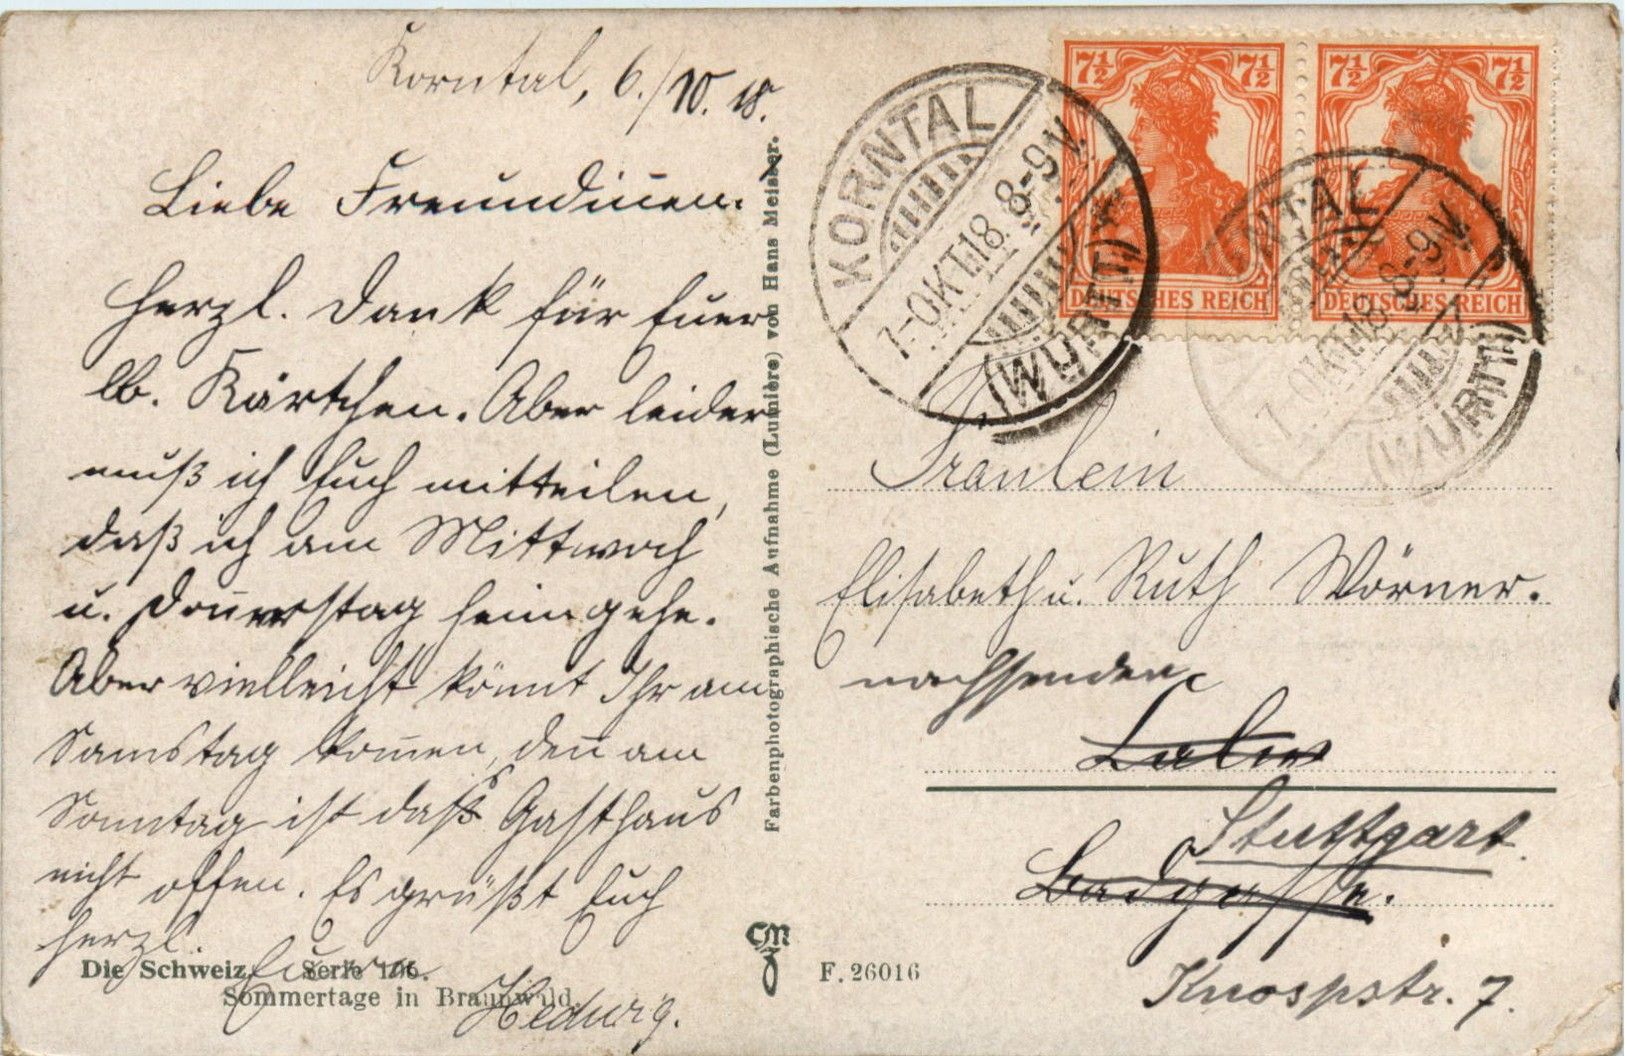 Korntal, 6./10. 18.
Liebe Freundinen.
Herzl. Dank für Euer
lb. Kärtchen. Aber leider
muß ich Euch mitteilen,
daß ich am Mittwoch
u. Donnerstag heimgehe.
Aber vielleicht könnt Ihr am
Samstag kom̅en, den̅ am
Sonntag ist das Gasthaus
nicht offen. Es grüßt Euch
herzl.
Eure
Hedwig.
Die Schweiz. Serie 106.
Sommertage in Braunwald.
Farbenphotographische Aufnahme (Lumière) von Hans Meisser.
F. 26016
7½ 7½
DEUTSCHES REICH
7½ 7½
DEUTSCHES REICH
KORNTAL
7-OKT.18. 8-9V.
(WÜRTT)
NTAL
7-OKT.18. 8-9V.
(WÜRTT)
Fräulein
Elisabeth u. Ruth Wörner.
nachsenden
Calw
Stuttgart.
Badgasse.
Knospstr. 7.